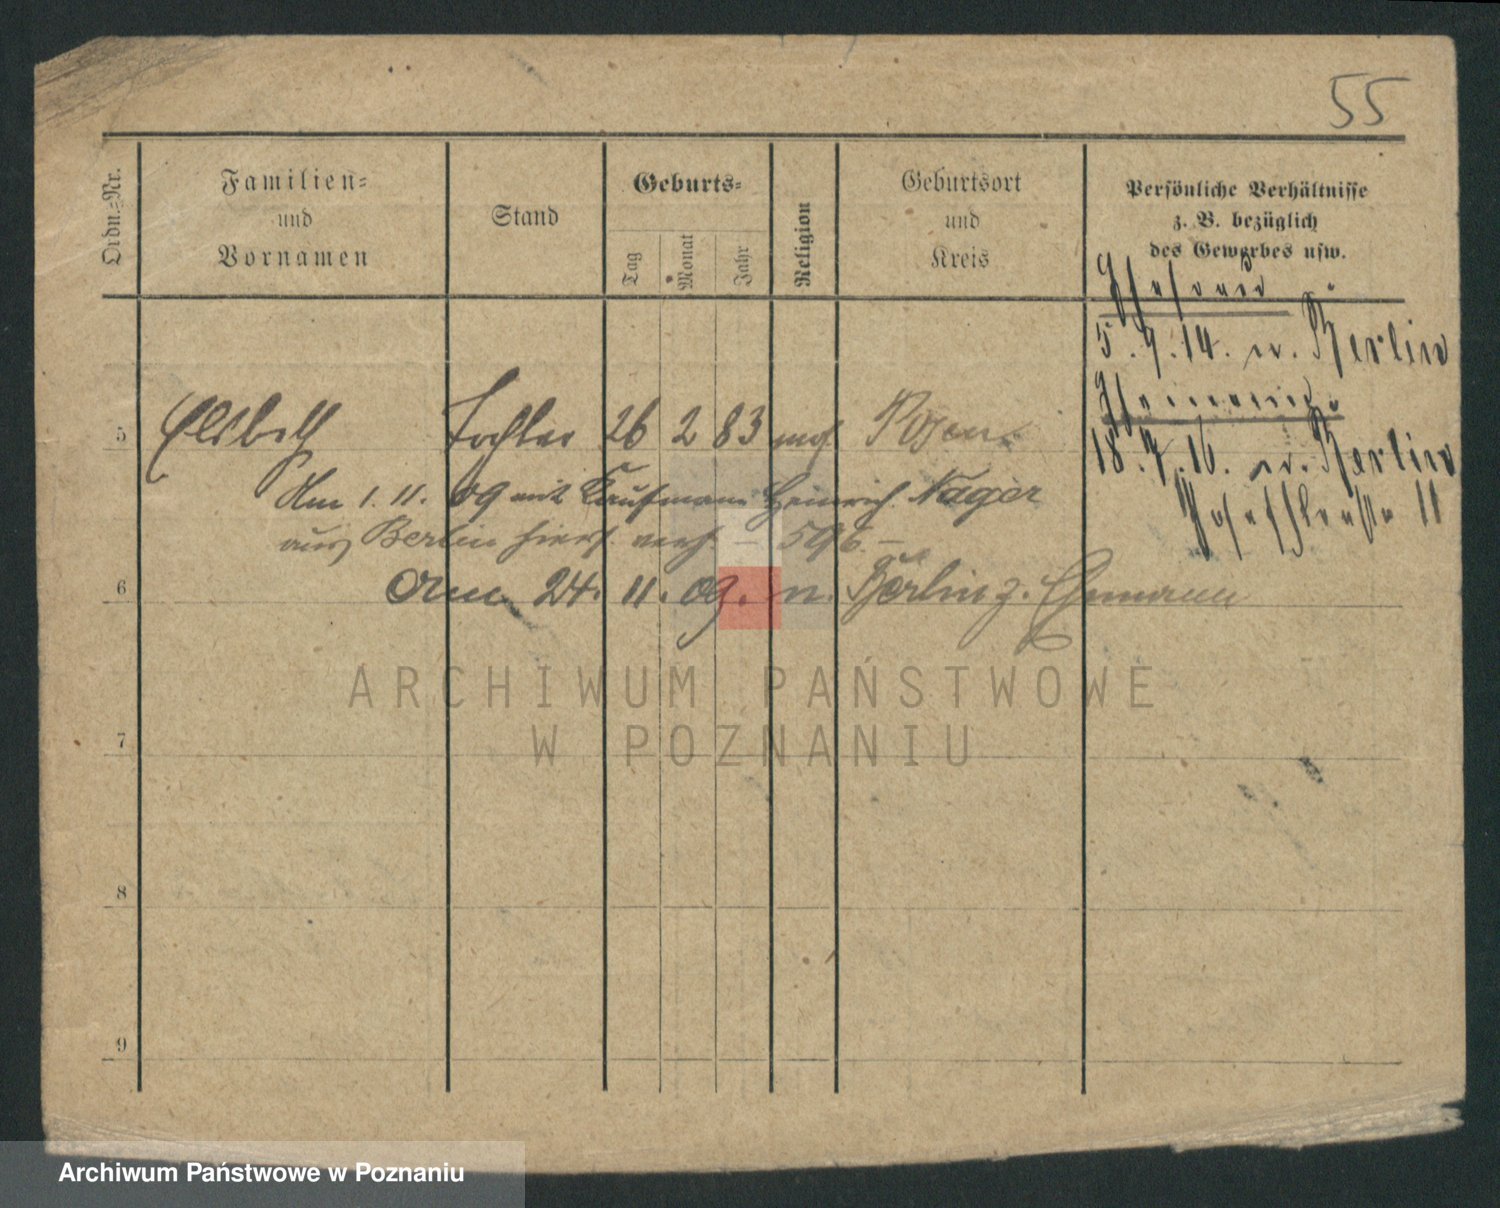 55
Ordn.-Nr.
Familien-
und
Vornamen
Stand
Geburts-
Tag
Monat
Jahr
Religion
Geburtsort
und
Kreis
Persönliche Verhältnisse
z. B. bezüglich
des Gewerbes usw.
5.9.14. n. Berlin
18.7.16. n. Berlin
11
5 Elsbeth Tochter 26 2 83 mos. Posen
Am 1. 11. 09 mit Kaufmann Heinrich Nager
aus Berlin hier verh. – 596 –
6 Am 24. 11. 09. n. Berlin z. Ehemann
7
8
9
ARCHIWUM PAŃSTWOWE
W POZNANIU
Archiwum Państwowe w Poznaniu